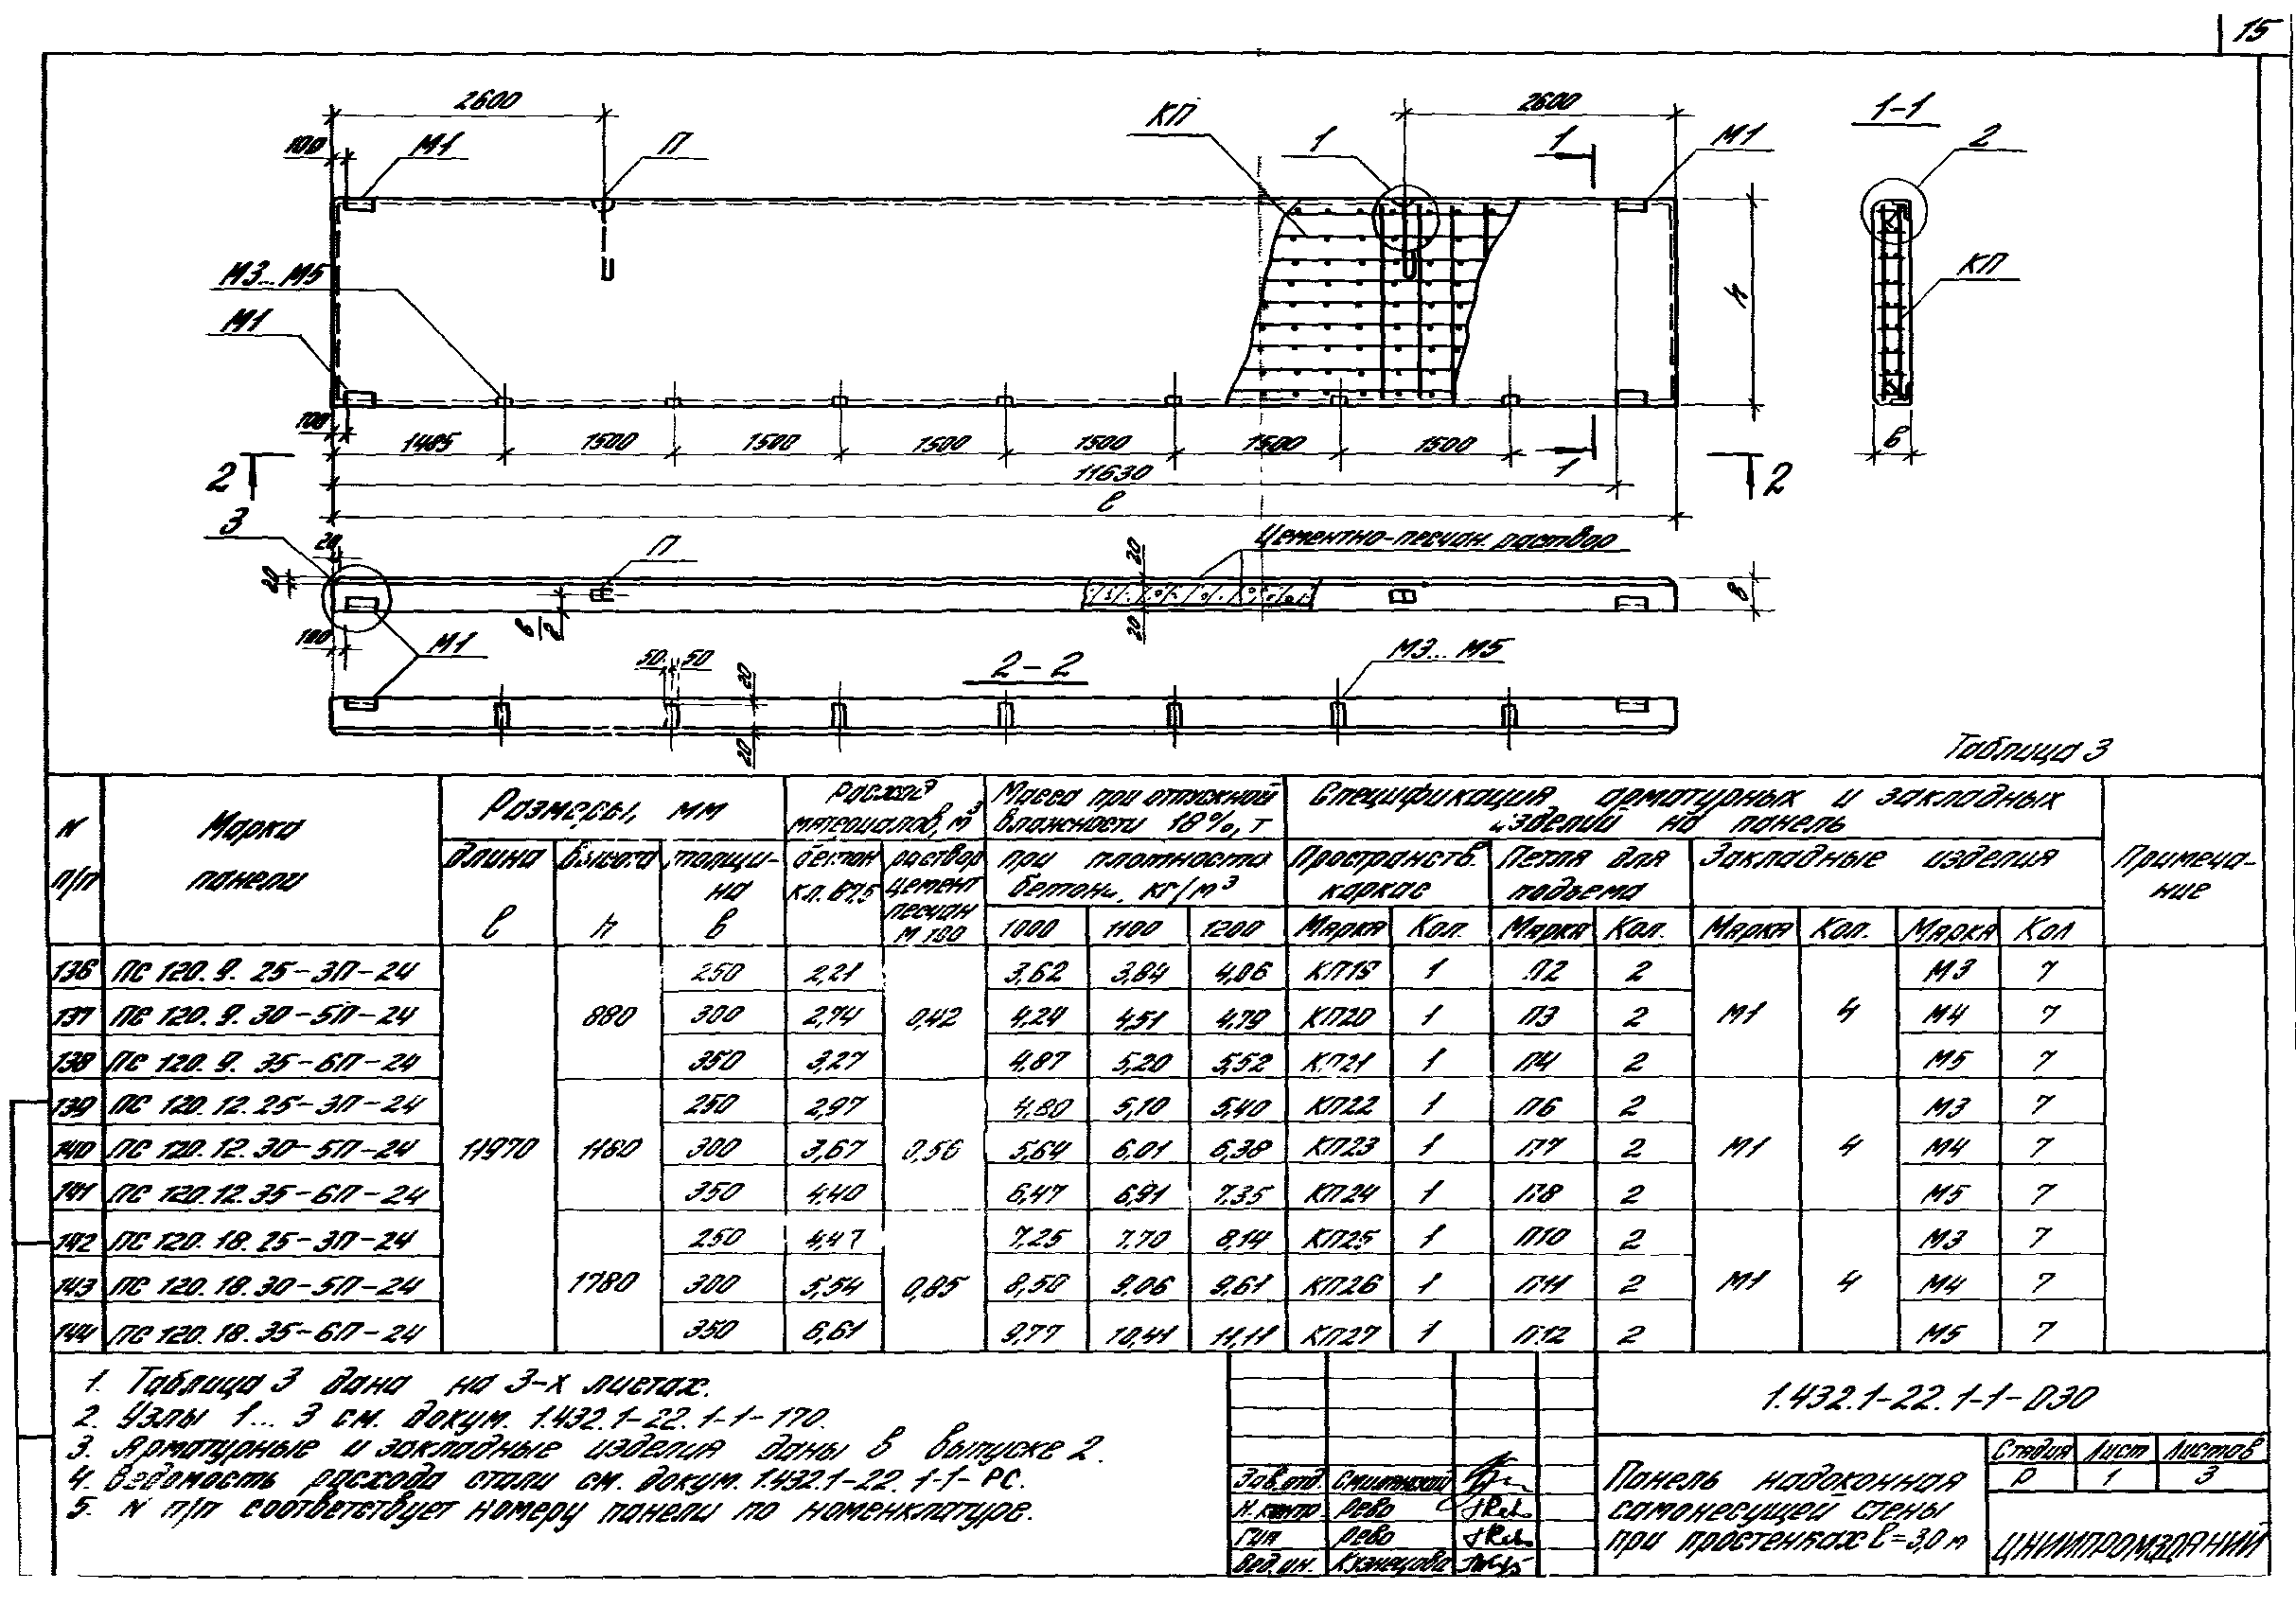 15
2600
2600
КП
1
1
М1
1-1
2
100
М1
П
М3...М5
М1
h
КП
100
1485
1500
1500
1500
1500
1500
1500
1
в
2
11630
2
ℓ
3
20
П
Цементно-песчан. раствор
20
20
20
в
в/2
100
М1
50
50
20
20
2-2
М3...М5
Таблица 3
N п/п
Марка панели
Размеры, мм
Расход материалов, м³
Масса при отпускной влажности 18%, т
Спецификация арматурных и закладных изделий на панель
Примечание
длина ℓ
высота h
толщина в
бетон кл. В7,5
раствор цемент песчан М 100
при плотности бетона, кг/м³
Пространств. каркас
Петля для подъема
Закладные изделия
1000 1100 1200 Марка Кол. Марка Кол. Марка Кол. Марка Кол
136 ПС 120.9.25-3П-24 250 2,21 3,62 3,84 4,06 КП19 1 П2 2 М3 7
137 ПС 120.9.30-5П-24 880 300 2,74 0,42 4,24 4,51 4,79 КП20 1 П3 2 М1 4 М4 7
138 ПС 120.9.35-6П-24 350 3,27 4,87 5,20 5,52 КП21 1 П4 2 М5 7
139 ПС 120.12.25-3П-24 250 2,97 4,80 5,10 5,40 КП22 1 П6 2 М3 7
140 ПС 120.12.30-5П-24 11970 1180 300 3,67 0,56 5,64 6,01 6,38 КП23 1 П7 2 М1 4 М4 7
141 ПС 120.12.35-6П-24 350 4,40 6,47 6,91 7,35 КП24 1 П8 2 М5 7
142 ПС 120.18.25-3П-24 250 4,47 7,25 7,70 8,14 КП25 1 П10 2 М3 7
143 ПС 120.18.30-5П-24 1780 300 5,54 0,85 8,50 9,06 9,61 КП26 1 П11 2 М1 4 М4 7
144 ПС 120.18.35-6П-24 350 6,61 9,77 10,41 11,11 КП27 1 П12 2 М5 7
1. Таблица 3 дана на 3-х листах.
2. Узлы 1...3 см. докум. 1.432.1-22.1-1-170.
3. Арматурные и закладные изделия даны в выпуске 2.
4. Ведомость расхода стали см. докум. 1.432.1-22.1-1-РС.
5. N п/п соответствует номеру панели по номенклатуре.
1.432.1-22.1-1-030
Зав. отд. Смилянский
Н. контр. Рево
ГИП Рево
Вед. ин. Кузнецова
Панель надоконная
самонесущей стены
при простенках ℓ=3,0 м
Стадия Лист Листов
Р 1 3
ЦНИИПРОМЗДАНИЙ